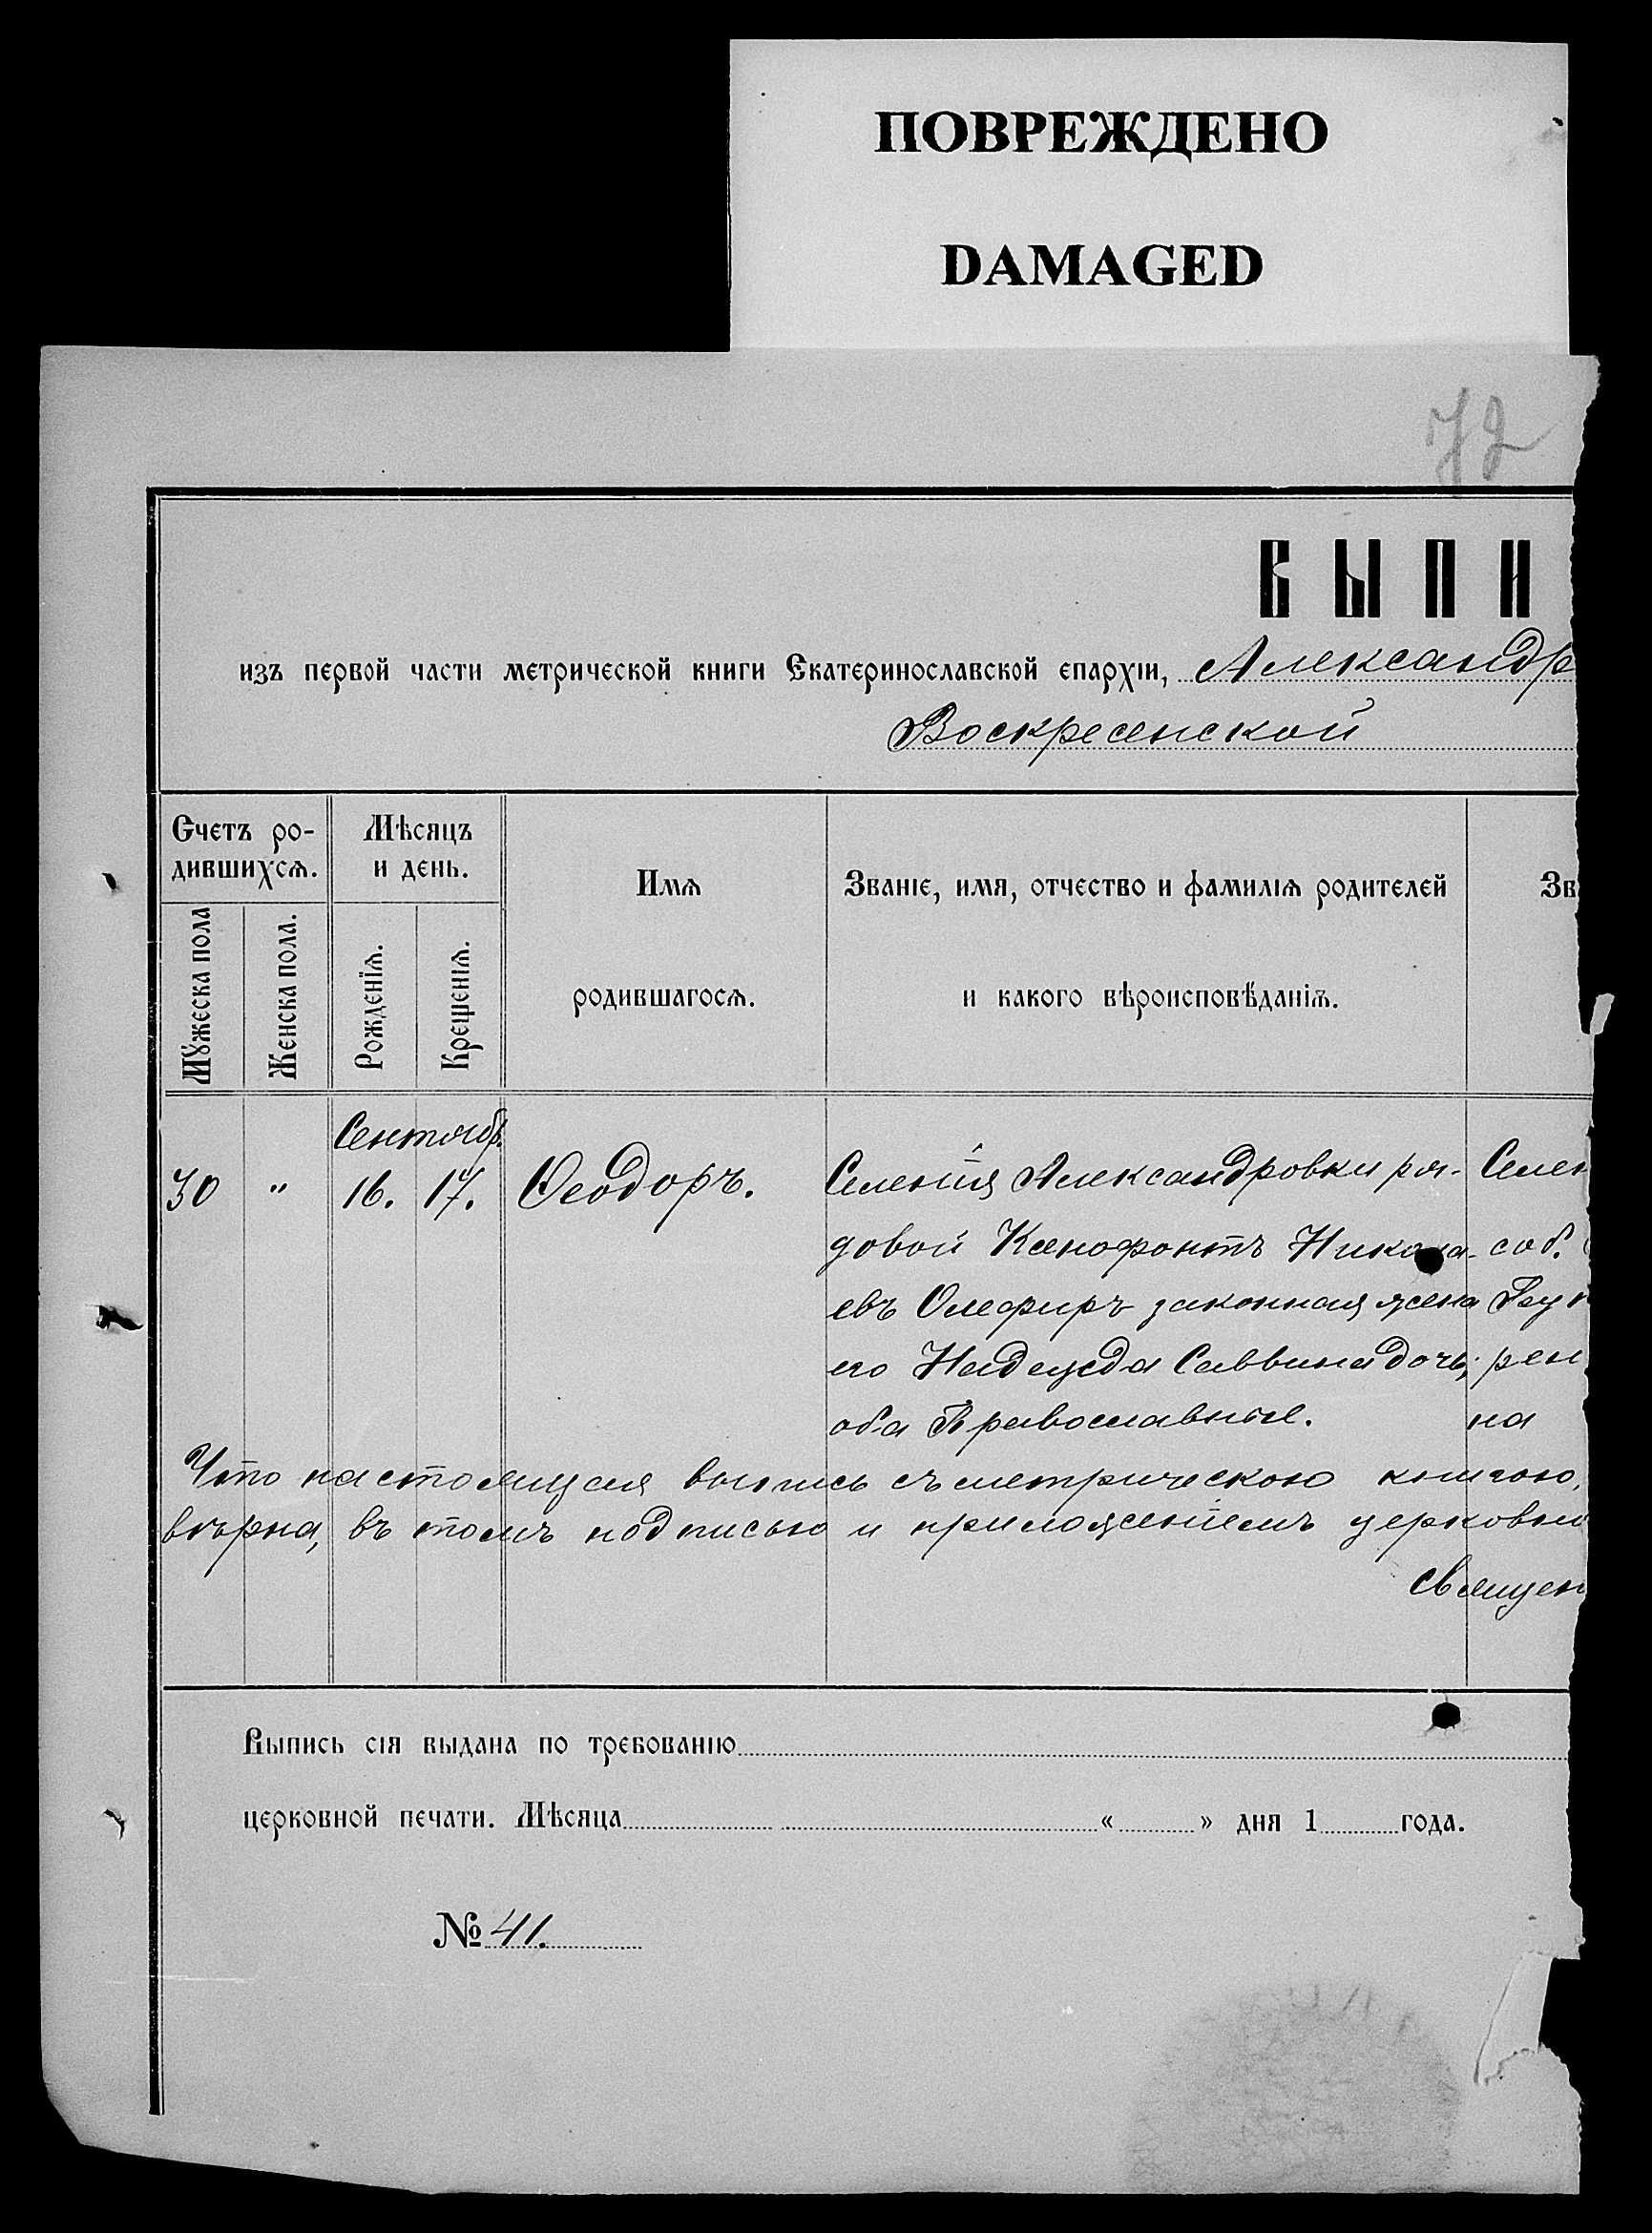 ПОВРЕЖДЕНО
DAMAGED
72
ВЫПИ
изъ первой части метрической книги Екатеринославской епархіи, Александр
Воскресенской
Счетъ ро-
дившихсѧ.
Мѣсяцъ
и день.
Имѧ
родившагосѧ.
Званіе, имя, отчество и фамиліѧ родителей
и какого вѣроисповѣданіѧ.
Зв
Мꙋжеска пола
Женска пола.
Рожденїѧ.
Крещенїѧ.
Сентябр.
30 " 16. 17. Ѳеодоръ.
Селенія Александровки ря- Селен
довой Ксенофонтъ Никола- соб.
евъ Олефиръ законная жена
его Надежда Саввина дочь; рен
оба Православные. на
Что настоящая выпись съ метрическою книгою,
вѣрна, въ томъ подписью и приложеніемъ церковно
Священ
Выпись сія выдана по требованію
церковной печати. Мѣсяца « » дня 1 года.
№ 41.